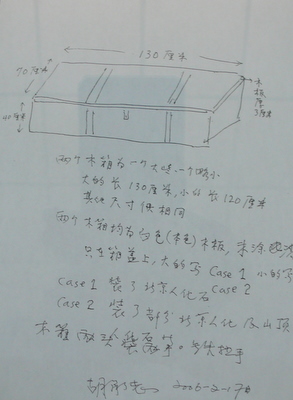 130厘米
70厘米
40厘米
木板厚3厘米
两个木箱为一个大些一个略小
大的长130厘米,小的长120厘米
其他尺寸俱相同
两个木箱均为白色(本色)木板,未涂油漆
只在箱盖上,大的写Case 1 小的写Case 2
Case 1 装了北京人化石
Case 2 装了部分北京人化石及山顶
木箱两
2006-2-17